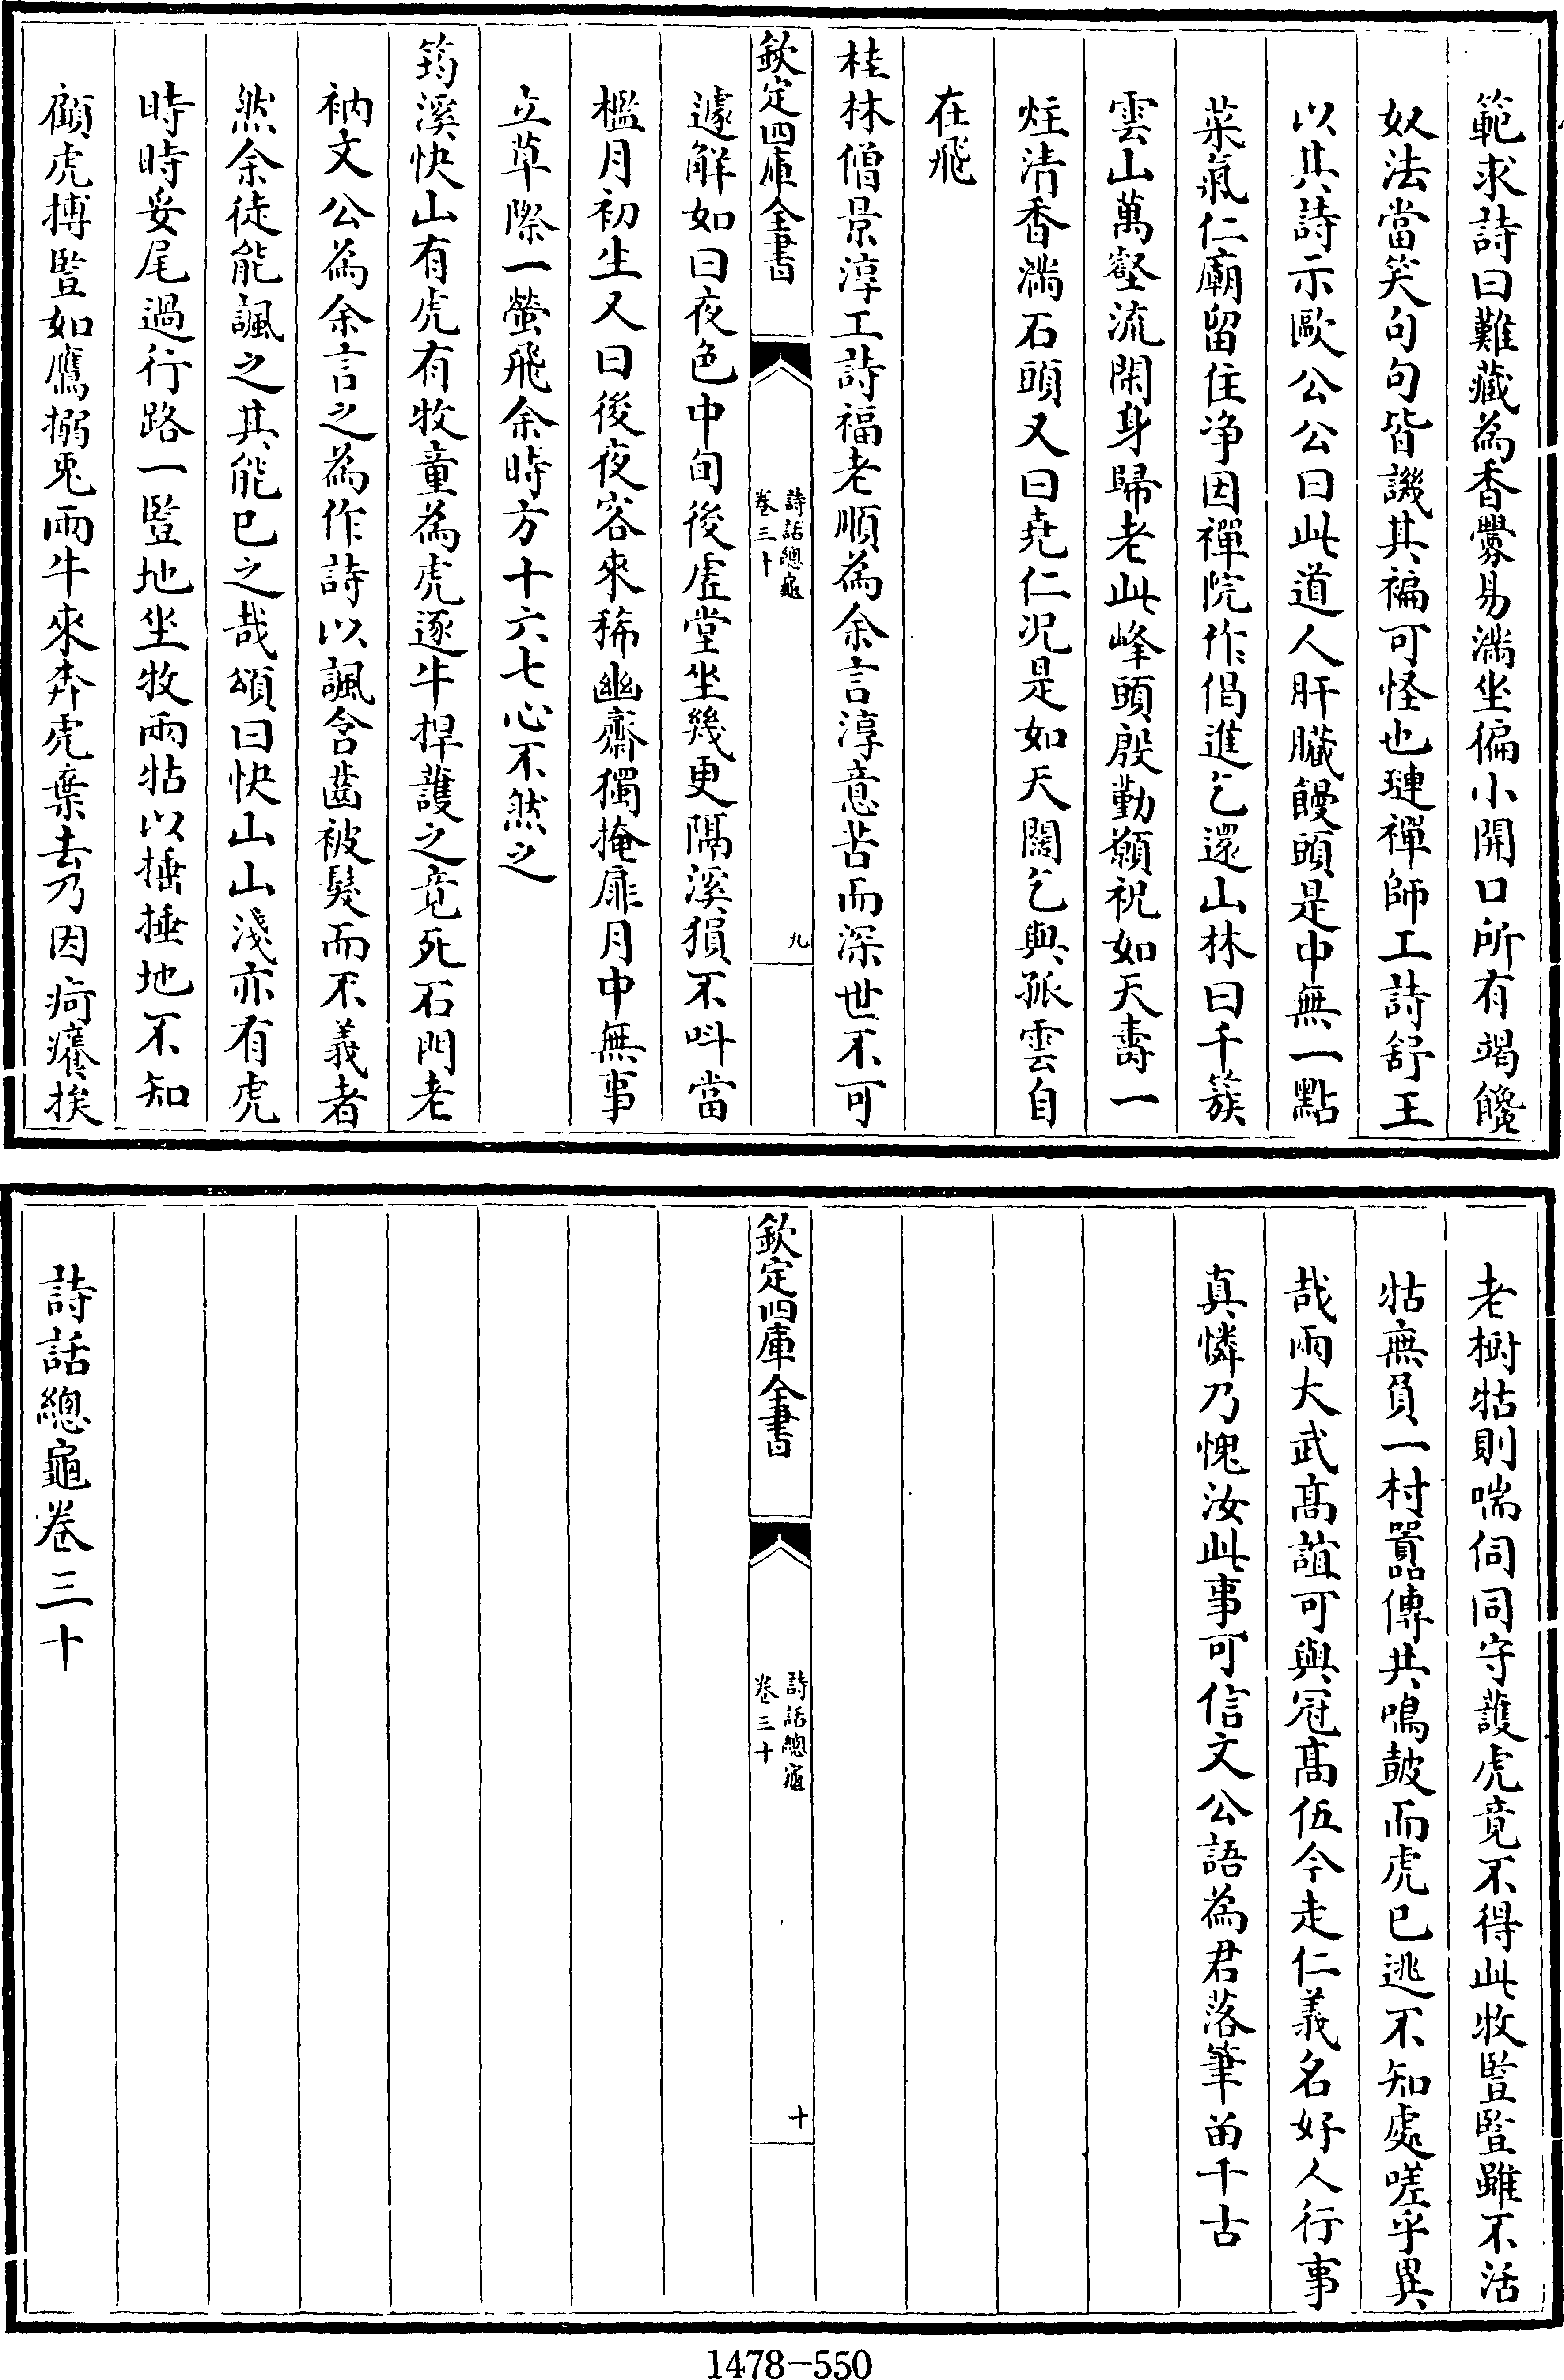 範求詩曰難藏為香爨易滿坐徧小開口所有竭饞
奴法當笑句句皆譏其褊可怪也璉禪師工詩舒王
以其詩示歐公公曰此道人肝臟饅頭是中無一點
菜氣仁廟留住净因禪院作偈進乞還山林曰千簇
雲山萬壑流閑身歸老此峰頭殷勤願祝如天壽一
炷清香滿石頭又曰堯仁况是如天闊乞與孤雲自
在飛
桂林僧景淳工詩福老順為余言淳意苦而深世不可
欽定四庫全書
詩話總龜
卷三十
九
遽解如曰夜色中旬後虛堂坐幾更隔溪猿不呌當
檻月初生又曰後夜客來稀幽齋獨掩扉月中無事
立草際一螢飛余時方十六七心不然之
筠溪快山有虎有牧童為虎逐牛捍護之竟死石門老
衲文公為余言之為作詩以諷含齒被髮而不義者
然余徒能諷之其能已之哉頌曰快山山淺亦有虎
時時妥尾過行路一豎地坐牧兩牯以捶捶地不知
顧虎搏豎如鷹搦兎兩牛來奔虎棄去乃因疴癢挨
老樹牯則喘伺同守護虎竟不得此牧豎豎雖不活
牯無負一村囂傳共鳴鼓而虎已逃不知處嗟乎異
哉兩大武髙誼可與冠髙伍今走仁義名好人行事
真憐乃愧汝此事可信文公語為君落筆畱千古
欽定四庫全書
詩話總龜
卷三十
十
詩話總龜卷三十
1478-550